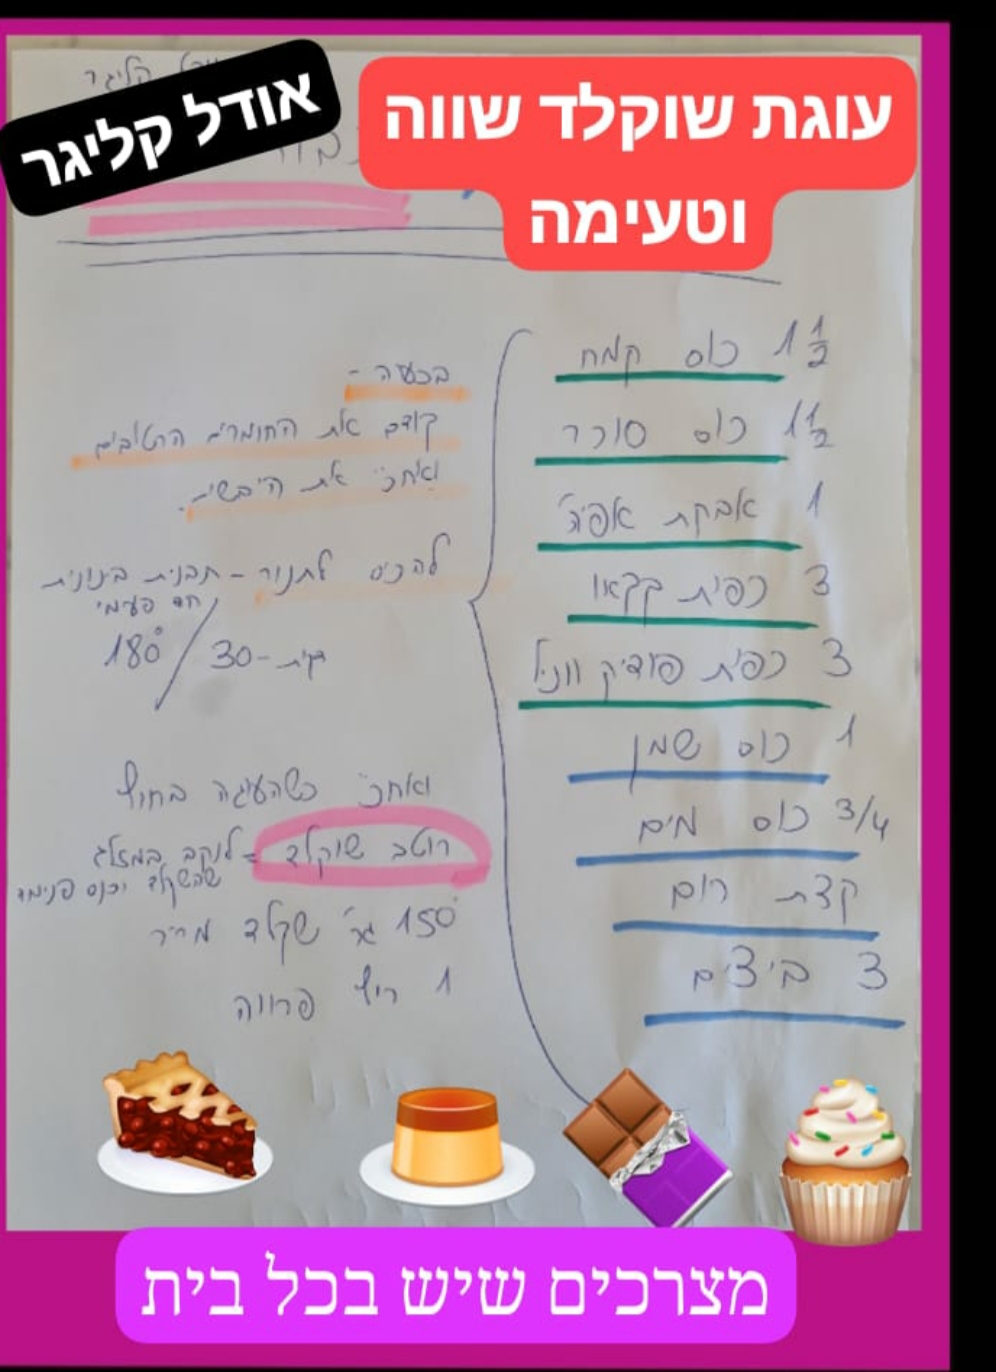 אודל קליגר
עוגת שוקלד שווה
וטעימה
קליגר
1 1/2 כוס קמח
1 1/2 כוס סוכר
1 אבקת אפיה
3 כפית קקאו
3 כפית פודיק ווניל
1 כוס שמן
3/4 כוס מים
קצת רום
3 ביצים
בכעיה -
קודם את החומרים הרטובים
ואח"כ את היבשים.
להכניס לתנור - תבנית בינונית
חד פעמי
180° / 30- דקות
ואח"כ כשהעוגה בחוץ
רוטב שוקלד = לנקב במזלג
שהשקלד יכנס פנימה
150 גר' שקלד מריר
1 ריץ' פרווה
מצרכים שיש בכל בית